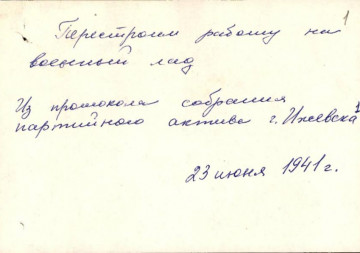 1
Перестроим работу на
военный лад
Из протокола собрания
партийного актива г. Ижевска¹
23 июня 1941 г.